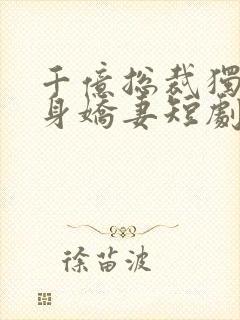 千億總裁獨
身嬌妻短劇
徐苗波